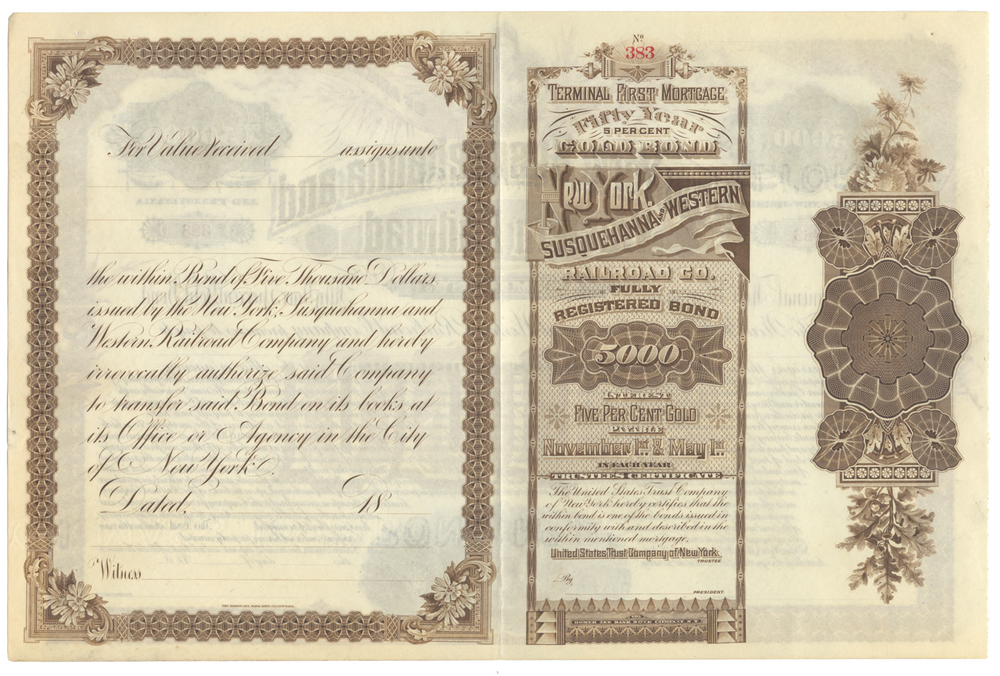 For Value received assigns unto
the within Bond of Five Thousand Dollars
issued by the New York, Susquehanna and
Western Railroad Company and hereby
irrevocally authorize said Company
to transfer said Bond on its books at
its Office or Agency in the City
of New York.
Dated, 18
Witness
No
383
TERMINAL FIRST MORTGAGE
Fifty Year
5 PER CENT
GOLD BOND
NEW YORK,
SUSQUEHANNA AND WESTERN
RAILROAD CO.
FULLY
REGISTERED BOND
5000
INTEREST
FIVE PER CENT GOLD
PAYABLE
November 1st & May 1st
IN EACH YEAR
TRUSTEE'S CERTIFICATE
The United States Trust Company
of New York hereby certifies that the
within bond is one of the bonds issued in
conformity with and described in the
within mentioned mortgage.
United States Trust Company of New York.
TRUSTEE
By
PRESIDENT.
HOMER LEE BANK NOTE COMPANY N.Y.